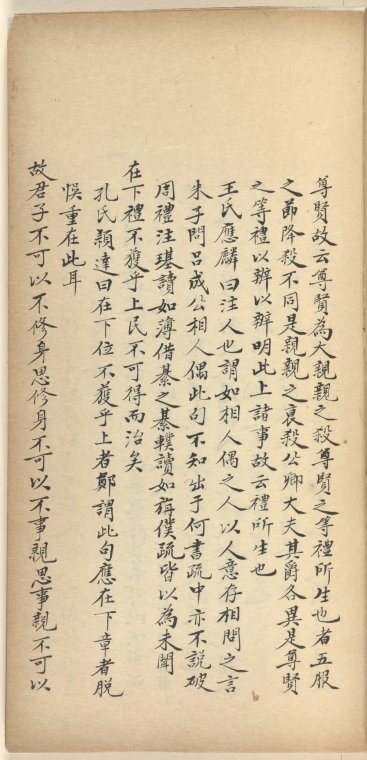 尊賢故云尊賢為大親親之殺尊賢之等禮所生也者五服
之節降殺不同是親親之衰殺公卿大夫其爵各異是尊賢
之等禮以辨以辨明此上諸事故云禮所生也
王氏應麟曰注人也謂如相人偶之人以人意存相問之言
朱子問呂成公相人偶此句不知出于何書疏中亦不說破
周禮注璂讀如薄借綦之綦轐讀如旆僕疏皆以為未聞
在下禮不獲乎上民不可得而治矣
孔氏穎達曰在下位不獲乎上者鄭謂此句應在下章者脫
悞重在此耳
故君子不可以不修身思修身不可以不事親思事親不可以